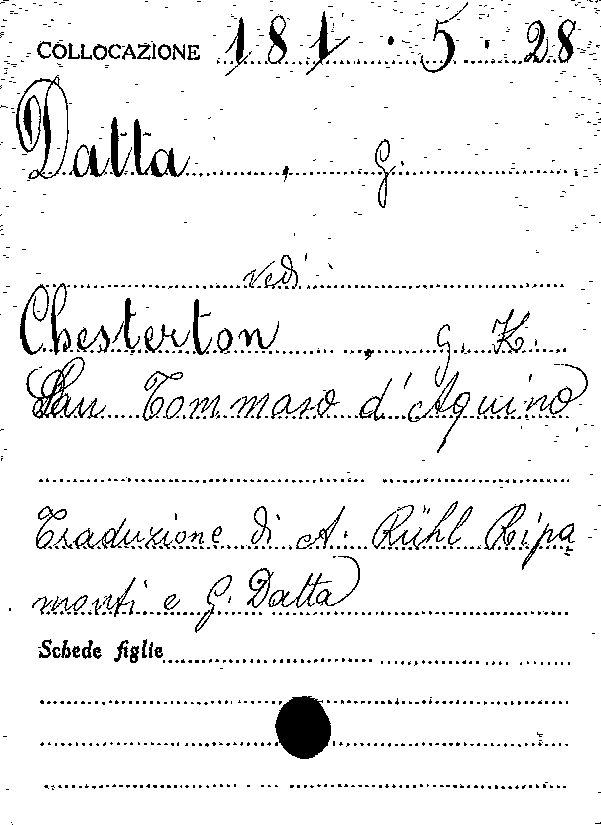 COLLOCAZIONE 181 . 5 . 28
Datta , G.
vedi
Chesterton , G. K.
San Tommaso d'Aquino
Traduzione di A. Rühl Ripa
monti e G. Datta
Schede figlie